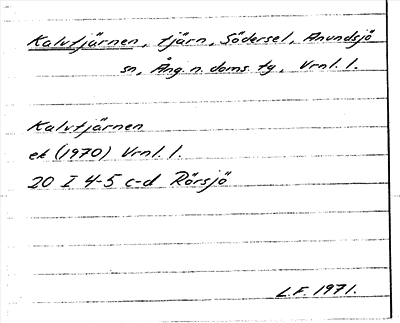 Kalvtjärnen, tjärn, Södersel, Anundsjö
sn, Ång. n. doms. tg, Vrnl. l.
Kalvtjärnen
ek (1970) Vrnl. l.
20 I 4-5 c-d Rörsjö
L.F. 1971.